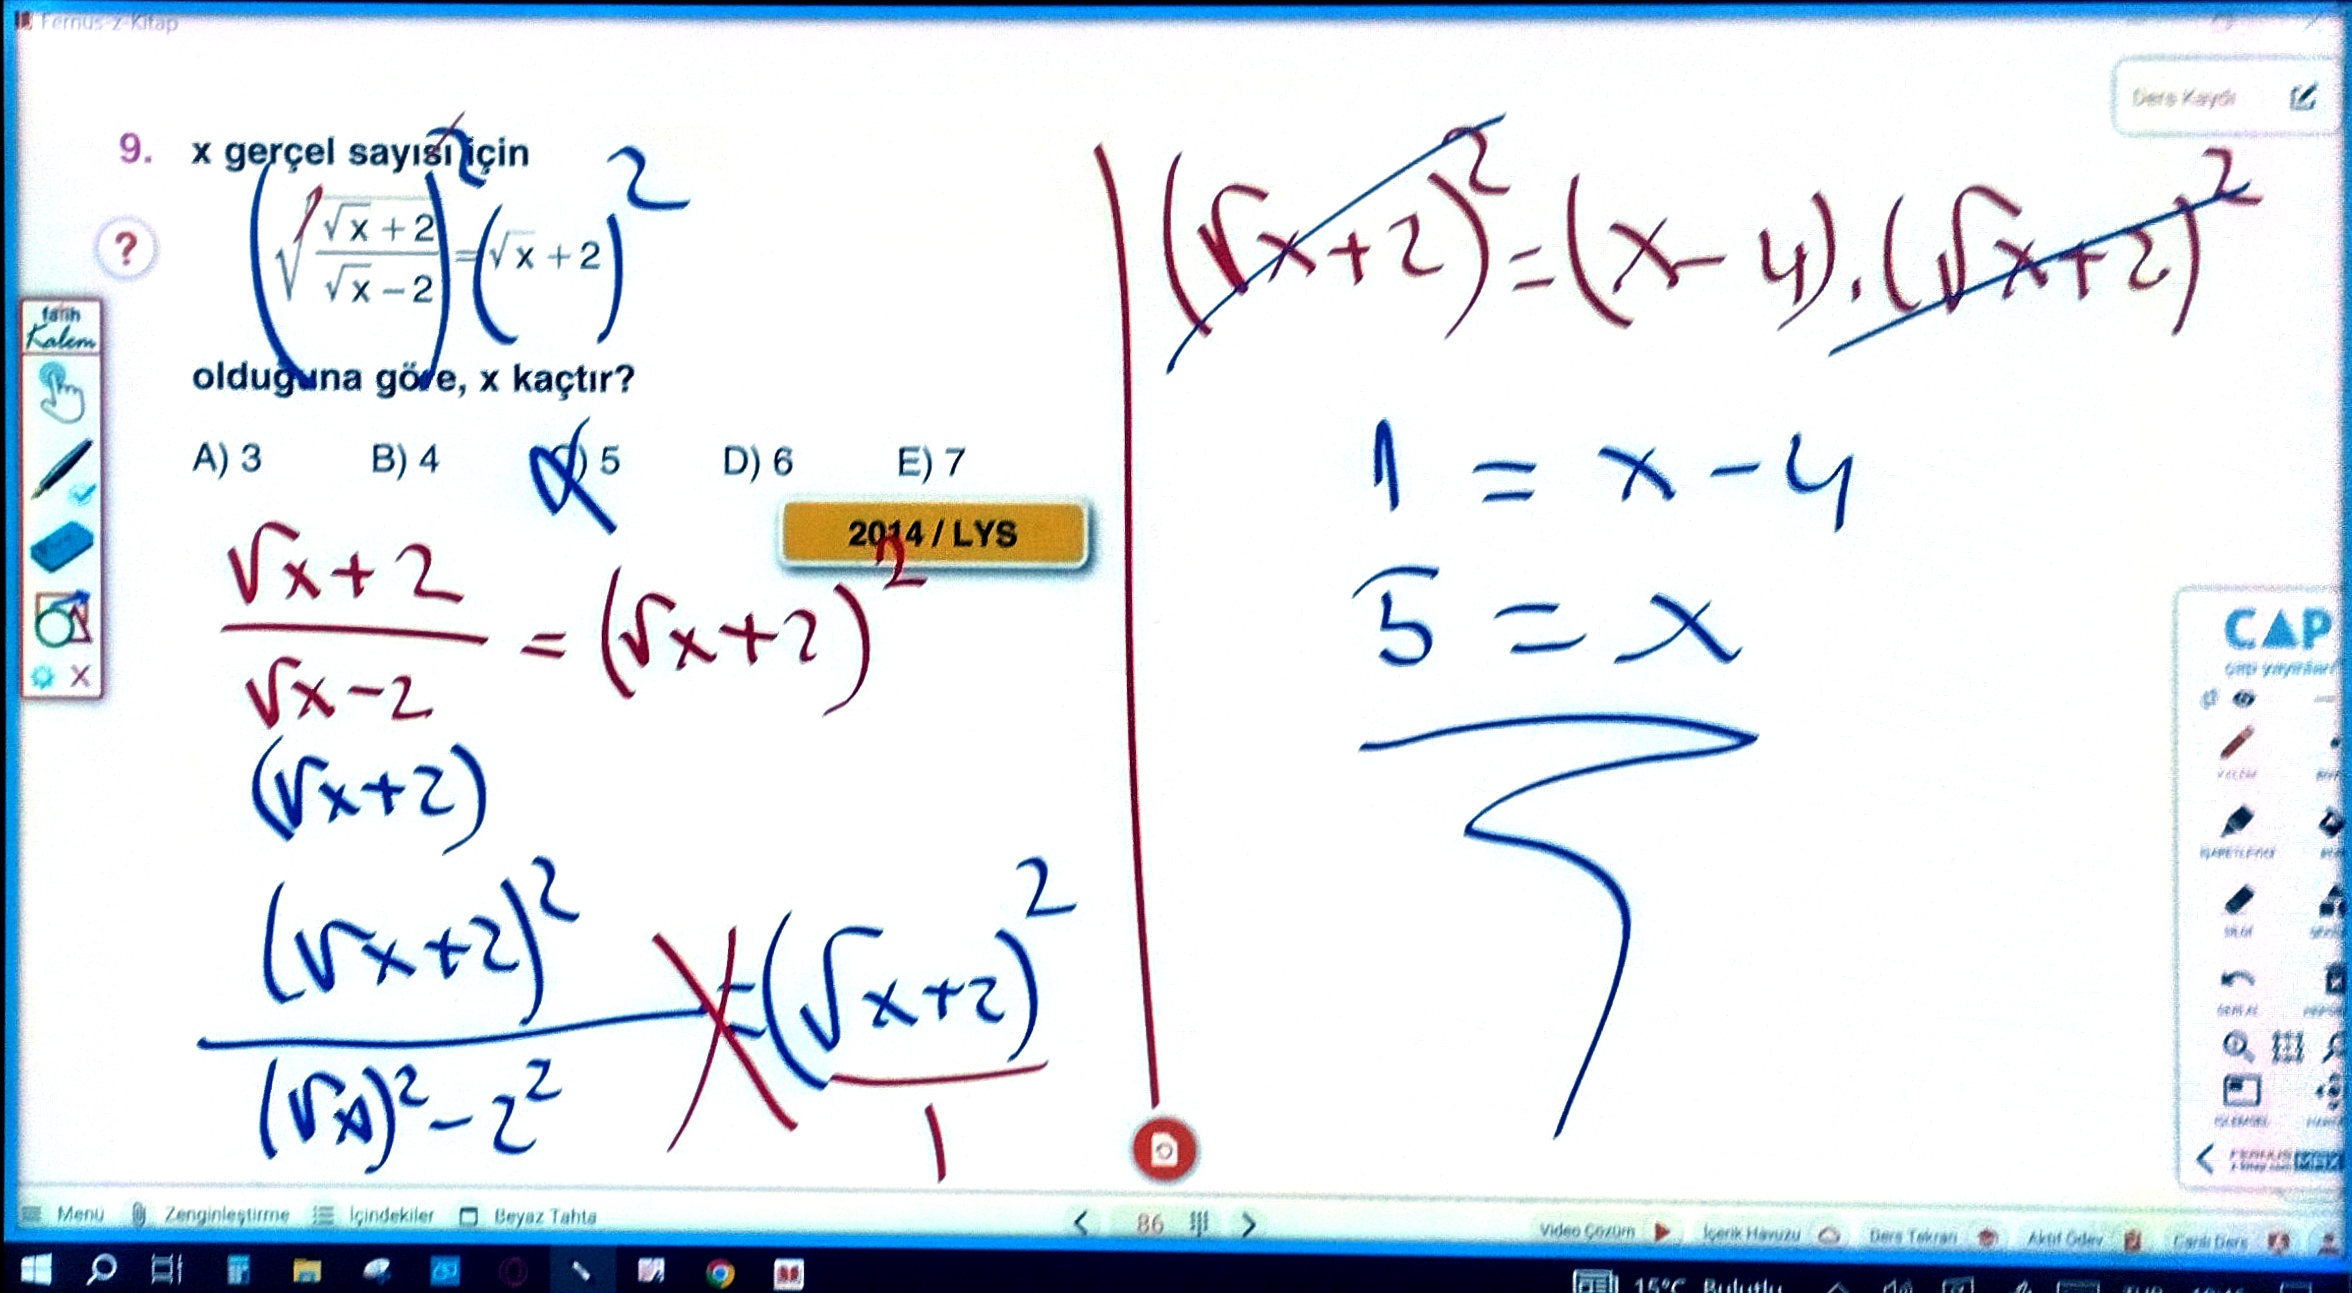 Fernus-z-Kitap
Ders Kaydı
9. x gerçel sayısı için
(√((√x + 2)/(√x − 2)))² = (√x + 2)²
olduğuna göre, x kaçtır?
A) 3 B) 4 C) 5 D) 6 E) 7
2014 / LYS
(√x+2)/(√x-2) = (√x+2)²
(√x+2)
(√x+2)²/((√x)²-2²) = (√x+2)²/1
(√x+2)² = (x-4).(√x+2)²
1 = x-4
5 = x
?
fatih
Kalem
x
CAP
Menü Zenginleştirme İçindekiler Beyaz Tahta
< 86 >
Video Çözüm İçerik Havuzu Ders Tekrarı Aktif Ödev Canlı Ders
15°C Bulutlu